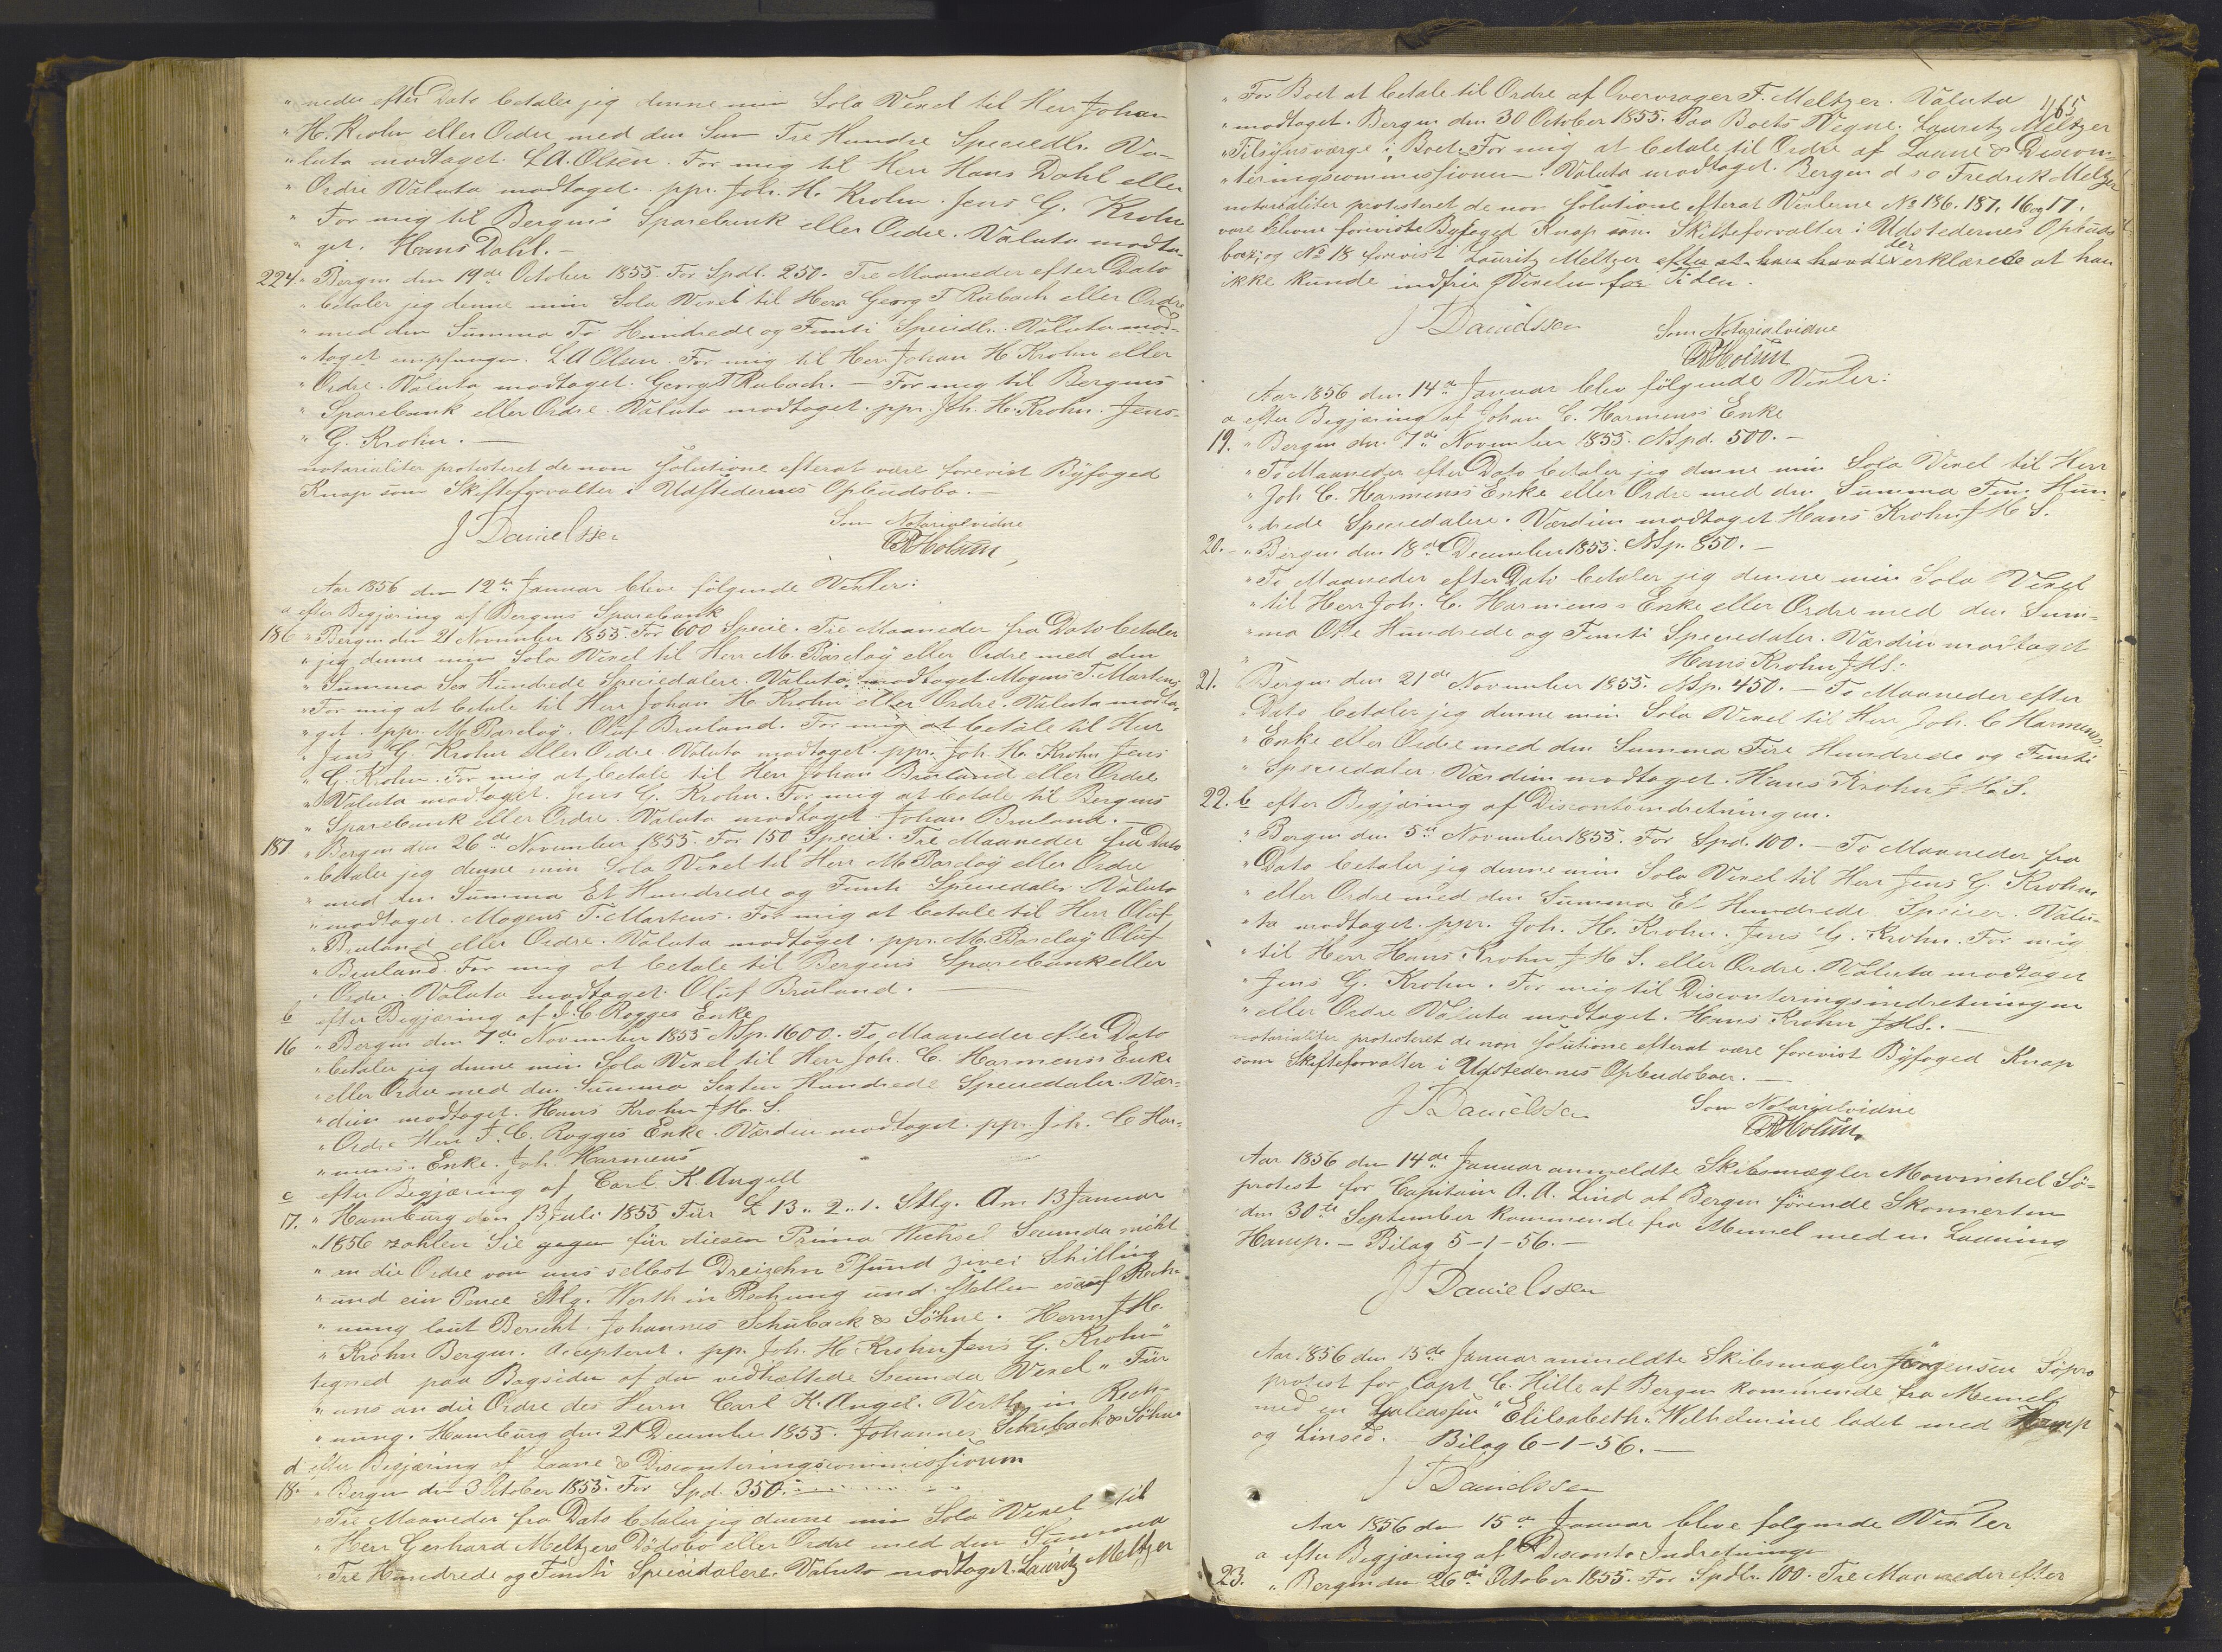 " neder efter Dato betaler jeg denne min Sola Vexel til Herr Johan
" H. Krohn eller Ordre med den Sum Tre Hundre Speciedlr. Va-
" luta modtaget. L A. Olsen. For mig til Herr Hans Dahl eller
" Ordre Valuta modtaget. ppr. Joh. H. Krohn. Jens G. Krohn
" For mig til Bergens Sparebank eller Ordre. Valuta modta-
" get. Hans Dahl. —
224. " Bergen den 19de October 1855. For Spdl. 250. Tre Maaneder efter Dato
" betaler jeg denne min Sola Vexel til Herr Georg T Rubach eller Ordre
" med den Summa To Hundrede og Femti Speciedlr. Valuta mod-
" taget empfangen. L A Olsen. For mig til Herr Johan H Krohn eller
" Ordre. Valuta modtaget. Georg T Rubach. — For mig til Bergens
" Sparebank eller Ordre. Valuta modtaget. ppr. Joh. H. Krohn. Jens
" G. Krohn. —
notarialiter protesteret de non solutione efterat være forevist Byfoged
Knap som Skifteforvalter i Udstederens Opbudsbo. —
J Danielssen
Som Notarialvidne
CRHolum
Aar 1856 den 12te Januar bleve følgende Vexler:
a efter Begjæring af Bergens Sparebank
186 " Bergen den 21 November 1855. For 600 Specie. Tre Maaneder fra Dato betaler
" jeg denne min Sola Vexel til Herr M. Barclay eller Ordre med den
" Summa Sex Hundrede Speciedalere. Valuta modtaget. Mogens T. Martens
" For mig at betale til Herr Johan H. Krohn eller Ordre. Valuta modta-
" get. ppr. M Barclay. Oluf Bruland. For mig at betale til Herr
" Jens G Krohn eller Ordre. Valuta modtaget. ppr. Joh. H. Krohn Jens
" G. Krohn. For mig at betale til Herr Johan Bruland eller Ordre
" Valuta modtaget. Jens G. Krohn. For mig at betale til Bergens
" Sparebank eller Ordre. Valuta modtaget. Johan Bruland. —
187 " Bergen den 26de November 1855. For 150 Specie. Tre Maaneder fra Dato
" betaler jeg denne min Sola Vexel til Herr M Barclay eller Ordre
" med den Summa Et Hundrede og Femti Speciedaler. Valuta
" modtaget. Mogens T. Martens. For mig at betale til Herr Oluf
" Bruland eller Ordre. Valuta modtaget. ppr. M. Barclay Oluf
" Bruland. For mig at betale til Bergens Sparebank eller
" Ordre. Valuta modtaget. Oluf Bruland. —
b efter Begjæring af J. C. Rogges Enke
16 " Bergen den 7de November 1855 NSp. 1600. To Maaneder efter Dato
" betaler jeg denne min Sola Vexel til Herr Joh. C. Harmens's Enke
" eller Ordre med den Summa Sexten Hundrede Speciedaler. Vær-
" dien modtaget. Hans Krohn J H. S.
" Ordre Herr J. C. Rogges Enke. Værdien modtaget. ppr. Joh. C Har-
" mens's Enke. Joh. Harmens
c efter Begjæring af Carl K. Angell
17. " Hamburg den 13 Juli 1855 Für £ 13 " 2 " 1. Stlg. Am 13 Januar
" 1856 zahlen Sie gegen für diesen Prima Wechsel Secunda nicht
" an die Ordre von uns selbst Dreizehn Pfund zwei Schilling
" und ein Pence Stlg. Werth in Rechnung und stellen es auf Rech-
" nung laut Bericht. Johannes Schuback & Söhne. Herrn J H.
" Krohn Bergen. Accepteret. pp. Joh. H. Krohn Jens G. Krohn"
tegned paa Bagsiden af den vedhæftede Secunda Vexel " Für
" uns an die Ordre des Herrn Carl K. Angel. Werth in Rech-
" nung. Hamburg den 21 December 1855. Johannes Schuback & Söhne
d efter Begjæring af Laane & Disconteringscommissionen
18. " Bergen den 3 October 1855. For Spd. 350.
" Tre Maaneder fra Dato betaler jeg denne min Sola Vexel til
" Herr Gerhard Meltzers Dødsbo eller Ordre med den Summa
" Tre Hundrede og Femti Speciedalere. Valuta modtaget. Lauritz Meltzer
165
" For Boet at betale til Ordre af Overvrager F. Meltzer. Valuta
" modtaget. Bergen den 30 October 1855. Paa Boets Vegne. Lauritz Meltzer
" Tilsynsværge i Boet. For mig at betale til Ordre af Laane & Discon-
" teringscommissionen. Valuta modtaget. Bergen d s o Fredrik Meltzer
notarialiter protesteret de non solutione efterat Vexlerne No 186. 187. 16 og 17.
vare blevne foreviste Byfoged Knap som Skifteforvalter i Udstedernes Opbuds
boer; og No 18 forevist Lauritz Meltzer efter at han havde der erklærede at han
ikke kunde indfrie Vexelen for Tiden.
J Danielssen
Som Notarialvidne
CRHolum
Aar 1856 den 14de Januar blev følgende Vexler:
a efter Begjæring af Johan C. Harmens's Enke
19. " Bergen den 7de November 1855. NSpd. 500. —
" To Maaneder efter Dato betaler jeg denne min Sola Vexel til Herr
" Joh C. Harmens's Enke eller Ordre med den Summa Fem Hun-
" drede Speciedalere. Værdien modtaget. Hans Krohn J H S.
20. — " Bergen den 18de December 1855. NSp. 850. —
" To Maaneder efter Dato betaler jeg denne min Sola Vexel
" til Herr Joh. C. Harmens's Enke eller Ordre med den Sum-
" ma Otte Hundrede og Femti Speciedaler. Værdien modtaget
" Hans Krohn J H S.
21. Bergen den 21de November 1855. NSp. 450. — To Maaneder efter
" Dato betaler jeg denne min Sola Vexel til Herr Joh. C Harmens's
" Enke eller Ordre med den Summa Fire Hundrede og Femti
" Speciedaler. Værdien modtaget. Hans Krohn J H. S.
22. b efter Begjæring af Discontoindretningen.
" Bergen den 5te November 1855. For Spd. 100. — To Maaneder fra
" Dato betaler jeg denne min Sola Vexel til Herr Jens G. Krohn
" eller Ordre med den Summa Et Hundrede Specier. Valu-
" ta modtaget. ppr. Joh. H. Krohn. Jens G. Krohn. For mig
" til Herr Hans Krohn J H S. eller Ordre. Valuta modtaget
" Jens G. Krohn. For mig til Disconteringsindretningen
" eller Ordre Valuta modtaget. Hans Krohn J H S. —
notarialiter protesteret de non solutione efterat være forevist Byfoged Knap
som Skifteforvalter i Udstedernes Opbudsboer. —
J Danielssen
Som Notarialvidne
CRHolum
Aar 1856 den 14de Januar anmeldte Skibsmægler Mowinckel Sø-
protest for Capitain A. A. Lind af Bergen førende Skonnerten
den 30te September kommende fra Memel med en Ladning
Hamp. — Bilag 5-1-56. —
J Danielssen
Aar 1856 den 15de Januar anmeldte Skibsmægler Jørgensen Søpro
protest for Capt C. Hille af Bergen kommende fra Memel
med en Galeassen "Elilsabeth Wilhelmine ladet med Hamp
og Linsed. Bilag 6-1-56. —
J Danielssen
Aar 1856 den 15de Januar bleve følgende Vexler
a efter Begjæring af Disconto Indretningen
23. " Bergen den 26de October 1855. For Spdlr. 100. Tre Maaneder efter